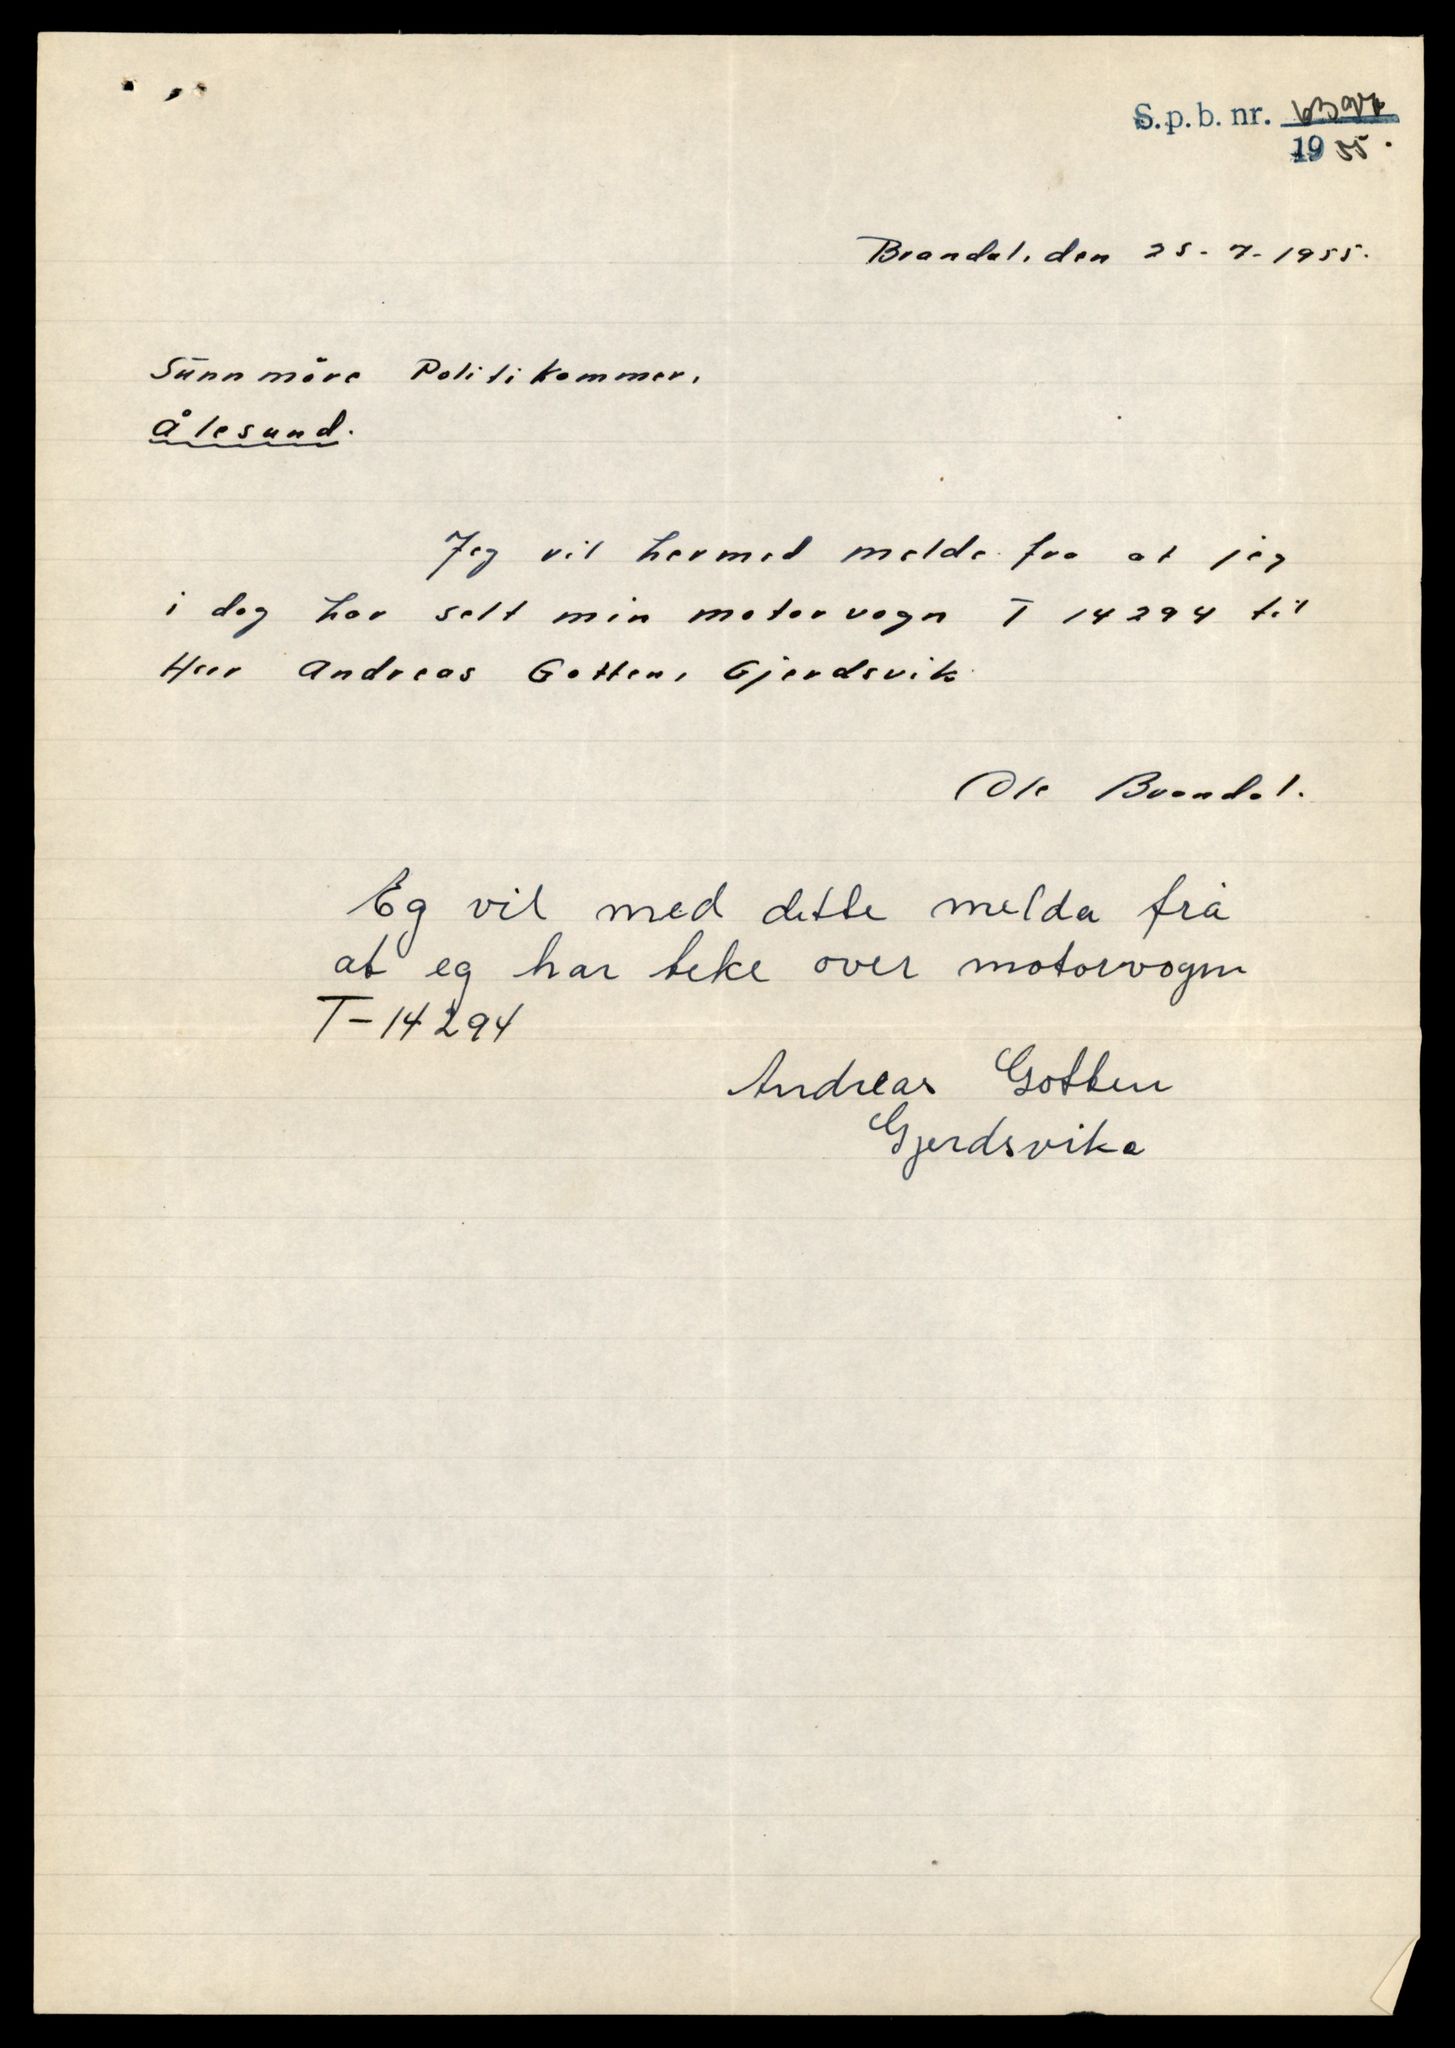 S.p.b. nr.
19 55.
Brandal, den 25-7-1955.
Sünnmöre Politikammer,
Ålesund.
Jeg vil hermed melde fra at jeg
i dag har selt min motorvogn T 14294 til
Herr Andreas Gotten, Gjerdsvik
Ole Brandal.
Eg vil med dette melda frå
at eg har teke over motorvogn
T-14294
Andreas Gotten
Gjerdsvika